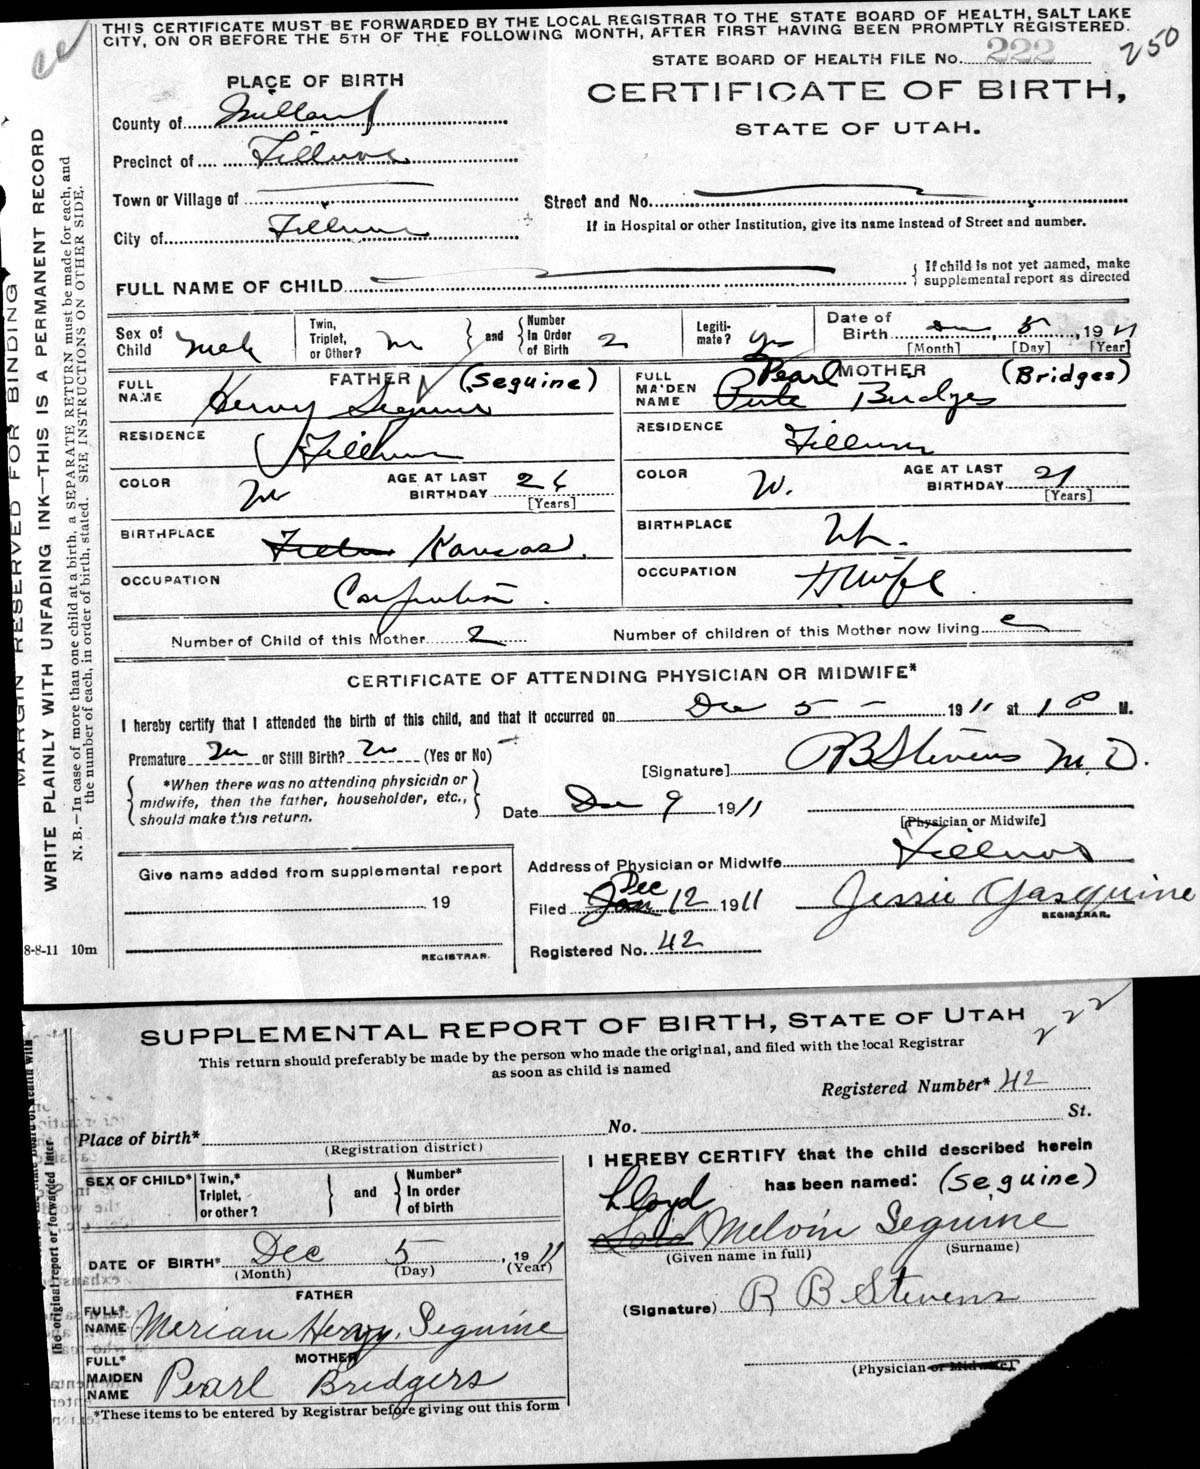 THIS CERTIFICATE MUST BE FORWARDED BY THE LOCAL REGISTRAR TO THE STATE BOARD OF HEALTH, SALT LAKE
CITY, ON OR BEFORE THE 5TH OF THE FOLLOWING MONTH, AFTER FIRST HAVING BEEN PROMPTLY REGISTERED.
250
STATE BOARD OF HEALTH FILE No. 222
PLACE OF BIRTH
CERTIFICATE OF BIRTH,
STATE OF UTAH.
County of Millard
Precinct of Fillmore
Town or Village of
Street and No.
If in Hospital or other Institution, give its name instead of Street and number.
City of Fillmore
FULL NAME OF CHILD
If child is not yet named, make
supplemental report as directed
MARGIN RESERVED FOR BINDING
WRITE PLAINLY WITH UNFADING INK—THIS IS A PERMANENT RECORD
N. B.—In case of more than one child at a birth, a SEPARATE RETURN must be made for each, and
the number of each, in order of birth, stated. SEE INSTRUCTIONS ON OTHER SIDE.
Sex of Child Male
Twin, Triplet, or Other? No
and
Number In Order of Birth 2
Legiti-mate? Yes
Date of Birth Dec 5, 1911
[Month] [Day] [Year]
FATHER (Seguine)
FULL NAME Henry Seguine
Pearl MOTHER (Bridges)
FULL MAIDEN NAME Bridges
RESIDENCE Fillmore
RESIDENCE Fillmore
COLOR W
AGE AT LAST BIRTHDAY 26
[Years]
COLOR W.
AGE AT LAST BIRTHDAY 21
[Years]
BIRTHPLACE Kansas.
BIRTHPLACE Ut.
OCCUPATION
OCCUPATION H Wife
Number of Child of this Mother 2
Number of children of this Mother now living
CERTIFICATE OF ATTENDING PHYSICIAN OR MIDWIFE*
I hereby certify that I attended the birth of this child, and that it occurred on Dec 5 - 1911 at 1 P M.
Premature No or Still Birth? No (Yes or No)
[Signature] R B Stevens M.D.
*When there was no attending physician or
midwife, then the father, householder, etc.,
should make this return.
Date Dec 9 1911
[Physician or Midwife]
Give name added from supplemental report
19
REGISTRAR.
Address of Physician or Midwife Fillmore
Filed Jan Dec 12 1911
Jessie Gasquine
REGISTRAR.
Registered No. 42
8-8-11 10m
SUPPLEMENTAL REPORT OF BIRTH, STATE OF UTAH
222
This return should preferably be made by the person who made the original, and filed with the local Registrar
as soon as child is named
Registered Number* 42
Place of birth* No. St.
(Registration district)
the original report or forwarded later
SEX OF CHILD*
Twin,* Triplet, or other?
and
Number* In order of birth
I HEREBY CERTIFY that the child described herein
has been named: (Seguine)
Lloyd
Melvin Seguine
(Given name in full) (Surname)
DATE OF BIRTH* Dec 5, 1911
(Month) (Day) (Year)
FATHER
FULL* NAME Merian Henry Seguine
(Signature) R B Stevens
(Physician or Midwife)
MOTHER
FULL* MAIDEN NAME Pearl Bridgers
*These items to be entered by Registrar before giving out this form